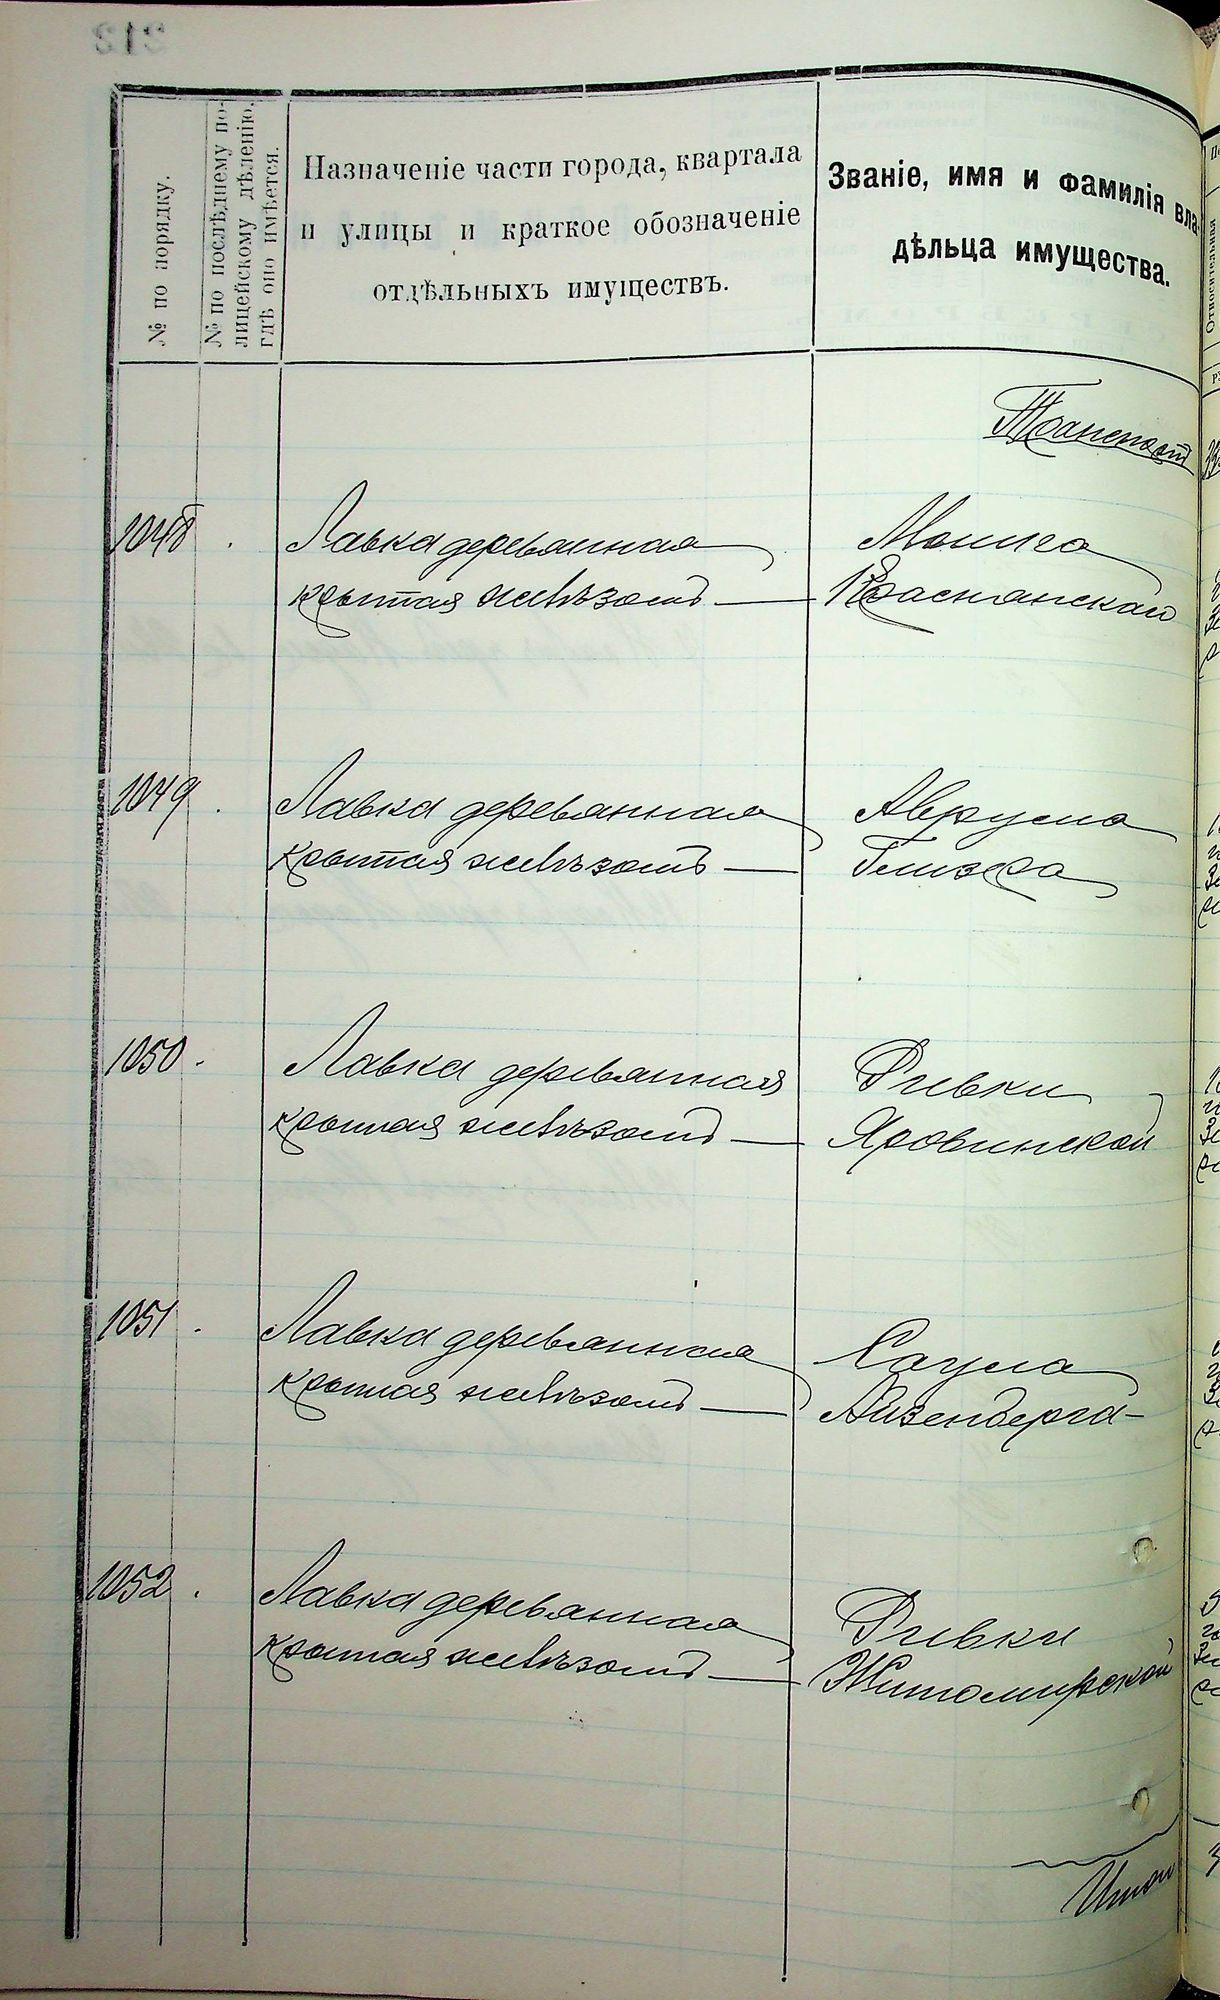 № по порядку.
№ по послѣднему по-
лицейскому дѣленію,
гдѣ оно имѣется.
Назначеніе части города, квартала
и улицы и краткое обозначеніе
отдѣльныхъ имуществъ.
Званіе, имя и фамилія вла-
дѣльца имущества.
Транспорт
1048.
Лавка деревянная
крытая желѣзомъ —
Мошка
1049.
Лавка деревянная
крытая желѣзомъ —
Аврума
Глизера
1050.
Лавка деревянная
крытая желѣзомъ —
Ривки
Яровинской
1051.
Лавка деревянная
крытая желѣзомъ —
Саула
Айзенберга
1052.
Лавка деревянная
крытая желѣзомъ —
Ривки
Житомирской
Итого